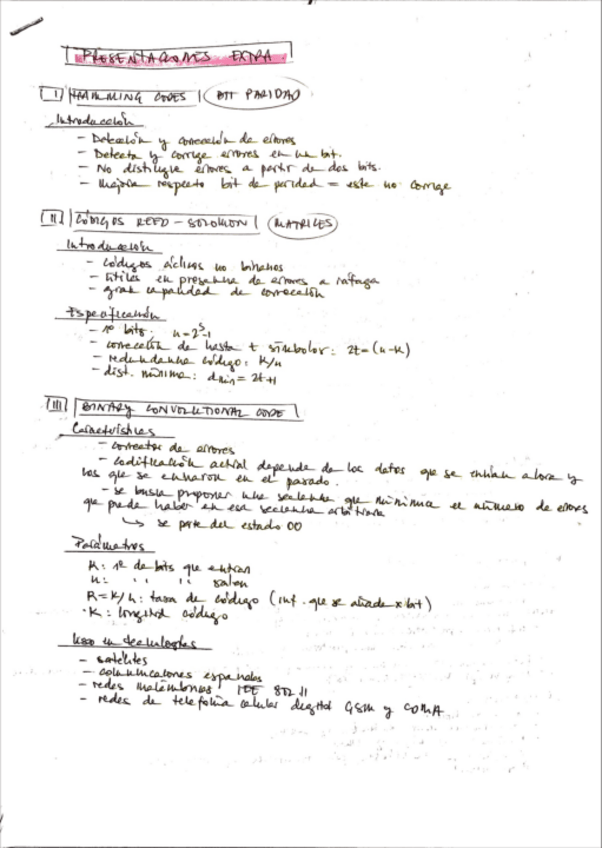 PRESENTACIONES EXTRA
I HAMMING CODES | BIT PARIDAD
Introducción
- Detección y corrección de errores
- Detecta y corrige errores en un bit.
- No distingue errores a partir de dos bits.
- Mejora respecto bit de paridad = este no corrige
II CÓDIGOS REED-SOLOMON | MATRICES
Introducción
- códigos cíclicos no binarios
- útiles en presencia de errores a ráfaga
- gran capacidad de corrección
Especificación
- nº bits: n=2^s-1
- corrección de hasta t símbolos: 2t=(n-k)
- redundancia código: k/n
- dist. mínima: dmin = 2t+1
III BINARY CONVOLUTIONAL CODE
Características
- corrector de errores
- codificación actual depende de los datos que se envían ahora y
los que se enviaron en el pasado.
- se busca proponer una secuencia que minimiza el número de errores
que puede haber en esa secuencia arbitraria
↳ se parte del estado 00
Parámetros
K: nº de bits que entran
n: " " " salen
R=K/n: tasa de código (inf. que se añade x bit)
·K: longitud código
Uso en tecnologías
- satélites
- comunicaciones espaciales
- redes inalámbricas IEE 802.11
- redes de telefonía celular digital GSM y CDMA